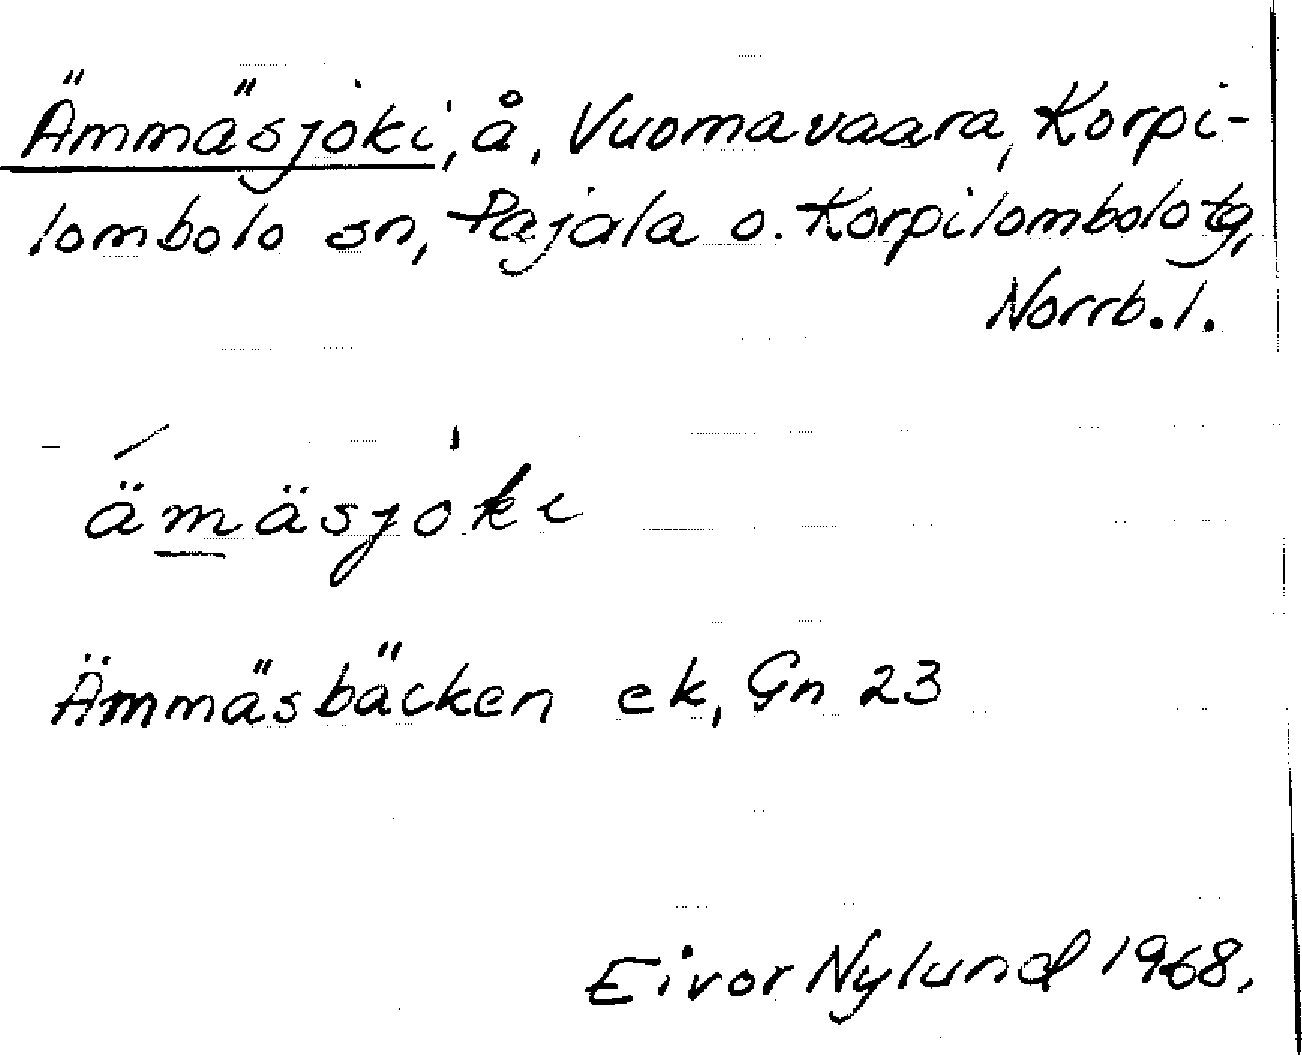 Ämmäsjoki, å, Vuomavaara, Korpi-
lombolo sn, Pajala o. Korpilombolo tg,
Norrb. l.
ä́mäsjò̩ki
Ämmäsbäcken ek, Gn 23
Eivor Nylund 1968.